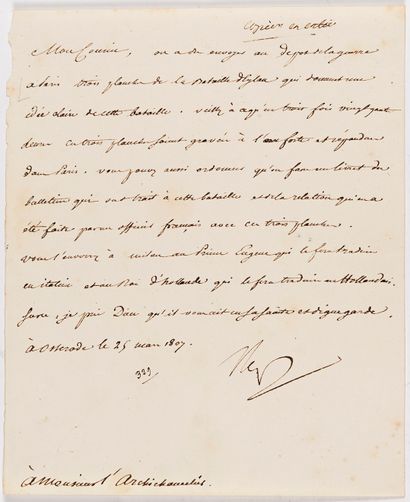 Copiée en entier
Mon Cousin, on a dû envoyer au depot de la guerre
a Paris trois planche de la Bataille d'Eylau qui donnent une
idée claire de cette bataille. veillez a ce qu'en trois fois vingt quatre
heure ces trois planche soient gravée à l'eau forte et répandue
dans Paris. vous pouvez aussi ordonner qu'on fasse un livret des
bulletins qui ont trait à cette bataille et de la relation qui en a
été faite par un officier français avec ces trois planches.
vous l'enverrez à Milan au Prince Eugene qui le fera traduire
en italien et au Roi d'hollande qui le fera traduire en Hollandais.
Sur ce, je prie Dieu qu'il vous ait en sa sainte et digne garde.
à Osterode le 25 mars 1807.
339/ Nap
à Monsieur l'Archichancelier.